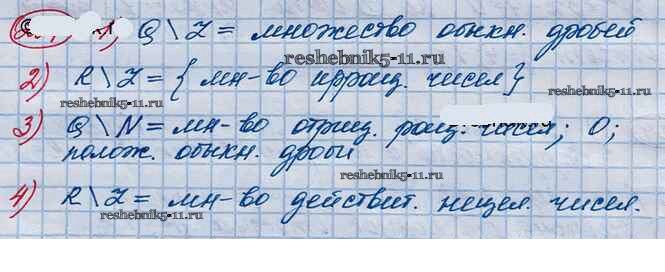 1) Q \ Z = множество обыкн. дробей
reshebnik5-11.ru
2) R \ Z = { мн-во иррац. чисел}
reshebnik5-11.ru reshebnik5-11.ru
3) Q \ N = мн-во отриц. рац. чисел; 0;
полож. обыкн. дроби
reshebnik5-11.ru
4) R \ Z = мн-во действит. нецел. чисел.
reshebnik5-11.ru
reshebnik5-11.ru